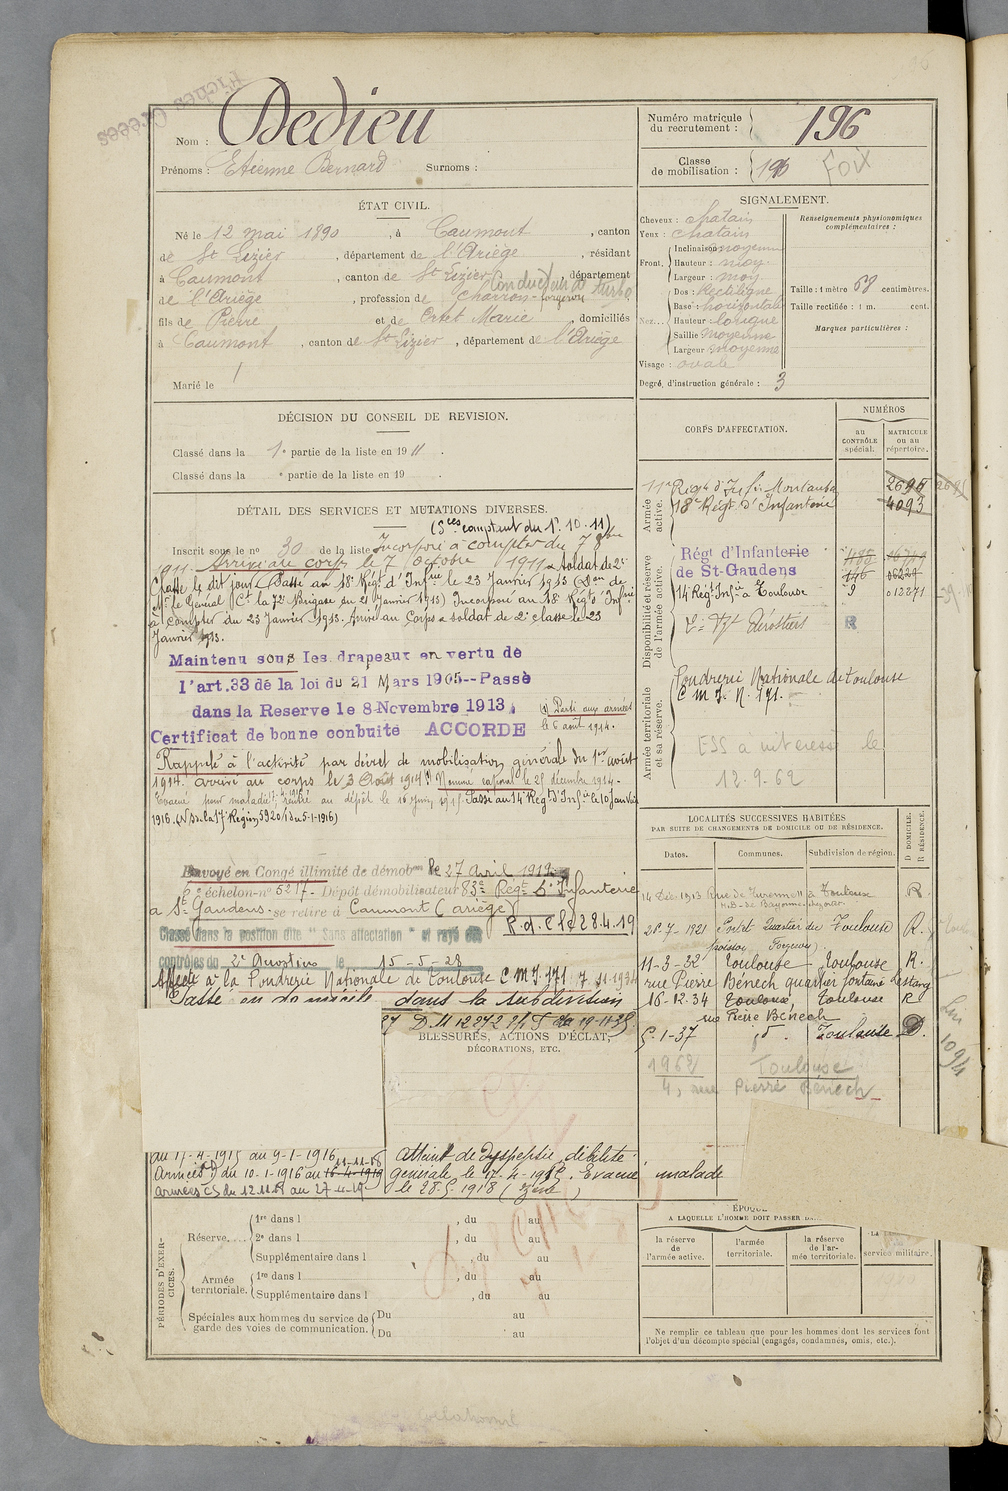 Fiches Créées
Nom : Dedieu
Prénoms : Etienne Bernard Surnoms :
Numéro matricule du recrutement : 196
Classe de mobilisation : 1910 Foix
ÉTAT CIVIL.
Né le 12 mai 1890, à Caumont, canton
de St Lizier, département de l'Ariège, résidant
à Caumont, canton de St Lizier, département
Conducteur de turbo
de l'Ariège, profession de charron-forgeron
fils de Pierre et de Crest Marie, domiciliés
à Caumont, canton de St Lizier, département de l'Ariège
Marié le /
SIGNALEMENT.
Cheveux : chatain
Yeux : chatain
Front. Inclinaison moyenne
Hauteur : moy.
Largeur : moy.
Nez... Dos : Rectiligne
Base : horizontale
Hauteur longue
Saillie moyenne
Largeur moyenne
Visage : ovale
Degré d'instruction générale : 3
Renseignements physionomiques complémentaires :
Taille : 1 mètre 68 centimètres.
Taille rectifiée : 1 m. cent.
Marques particulières :
DÉCISION DU CONSEIL DE REVISION.
Classé dans la 1e partie de la liste en 1911.
Classé dans la e partie de la liste en 19 .
DÉTAIL DES SERVICES ET MUTATIONS DIVERSES.
(Sces comptent du 1er. 10. 11)
Inscrit sous le no 30 de la liste Incorporé à compter du 7 8bre
1911. Arrivé au corps le 7 Octobre 1911 & soldat de 2e
Classe le dit jour. Passé au 18e Régt d'Infrie le 23 Janvier 1913 (Don de
Mr le Général Ct la 72e Brigade du 21 Janvier 1913) Incorporé au 18e Régt Infrie
à compter du 23 Janvier 1913. Arrivé au Corps & soldat de 2e classe le 23
Janvier 1913.
Maintenu sous les drapeaux en vertu de
l'art. 33 de la loi du 21 Mars 1905--Passé
dans la Reserve le 8 Novembre 1913.
Certificat de bonne conduite ACCORDE
(1) Parti aux armées
le 6 août 1914.
Rappelé à l'activité par décret de mobilisation générale du 1er août
1914. arrivé au corps le 3 Août 1914 (1) Nommé caporal le 25 décembre 1914.
Evacué pour maladie, rentré au dépôt le 16 Juin 1915. Passé au 14e Regt d'Infie le 10 Janvier
1916. (N. S. de la 17e Région 5920/1 du 5-1-1916)
Envoyé en Congé illimité de démobon le 27 Avril 1919
échelon-no 5217. Dépôt démobilisateur 83e Regt d'Infanterie
à St Gaudens. se retire à Caumont (ariège)
P. d. C le 28.4.19
Classé dans la position dite "Sans affectation" et rayé des
contrôles du 2e Aérostiers le 15-5-28
Affecté à la Fondrerie Nationale de Toulouse C M I. 171. 7.11.1934
Passé en domicile dans la subdivision
D. M 12272
BLESSURES, ACTIONS D'ÉCLAT,
DÉCORATIONS, ETC.
au 17-4-1915 au 9-1-1916
Armées du 10-1-1916 au 16-4-1919 11-11-18
Armées CS du 12.11.18 au 27-4-19
atteint de dyspepsie, débilité
générale le 17-4-1915. Evacué malade
le 28.5.1918 (
CORPS D'AFFECTATION.
NUMÉROS
au CONTRÔLE spécial.
MATRICULE ou au répertoire.
Armée active.
11e Regt d'Infie Montauban 2695 2695
18e Régt d'Infanterie 4093
Disponibilité et réserve de l'armée active.
Régt d'Infanterie
de St-Gaudens
14e Régt Infie à Toulouse 9 012271
2e Rgt Aérostiers R
Armée territoriale et sa réserve.
Fondrerie Nationale de Toulouse
C M I. N. 171.
ESS à intéressé le
12.9.62
LOCALITÉS SUCCESSIVES HABITÉES
PAR SUITE DE CHANGEMENTS DE DOMICILE OU DE RÉSIDENCE.
Dates. Communes. Subdivision de région. D DOMICILE. R RÉSIDENCE.
14 Déc 1913 Rue de Turenne 11 à Toulouse R
28-7-1921 Portet Quartier du Toulouse R.
11-3-32 Toulouse Toulouse R.
rue Pierre Bénech quartier fontaine Lestang
16-12.34 Toulouse, Toulouse R
rue Pierre Bénech
5.1-37 id. Toulouse D.
1962 Toulouse
4, rue Pierre Bénech
1094
PÉRIODES D'EXERCICES.
Réserve.... 1re dans l , du au
2e dans l , du au
Supplémentaire dans l , du au
Armée territoriale. 1re dans l , du au
Supplémentaire dans l , du au
Spéciales aux hommes du service de garde des voies de communication. Du au
Du au
ÉPOQUE
A LAQUELLE L'HOMME DOIT PASSER DA
la réserve de l'armée active.
l'armée territoriale.
la réserve de l'armée territoriale.
service militaire.
Ne remplir ce tableau que pour les hommes dont les services font
l'objet d'un décompte spécial (engagés, condamnés, omis, etc.).